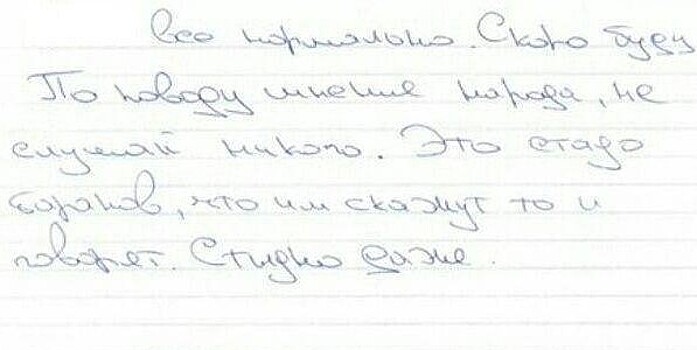 все нормально. Скоро буду
По поводу мнение народа, не
слушай никого. Это стадо
баранов, что им скажут то и
говорят. Стыдно даже.